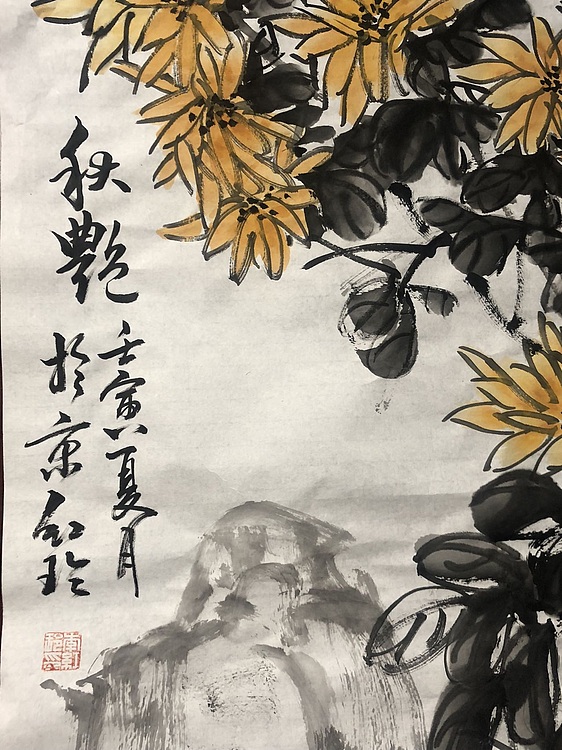 秋艷
壬寅夏月
於京红玲